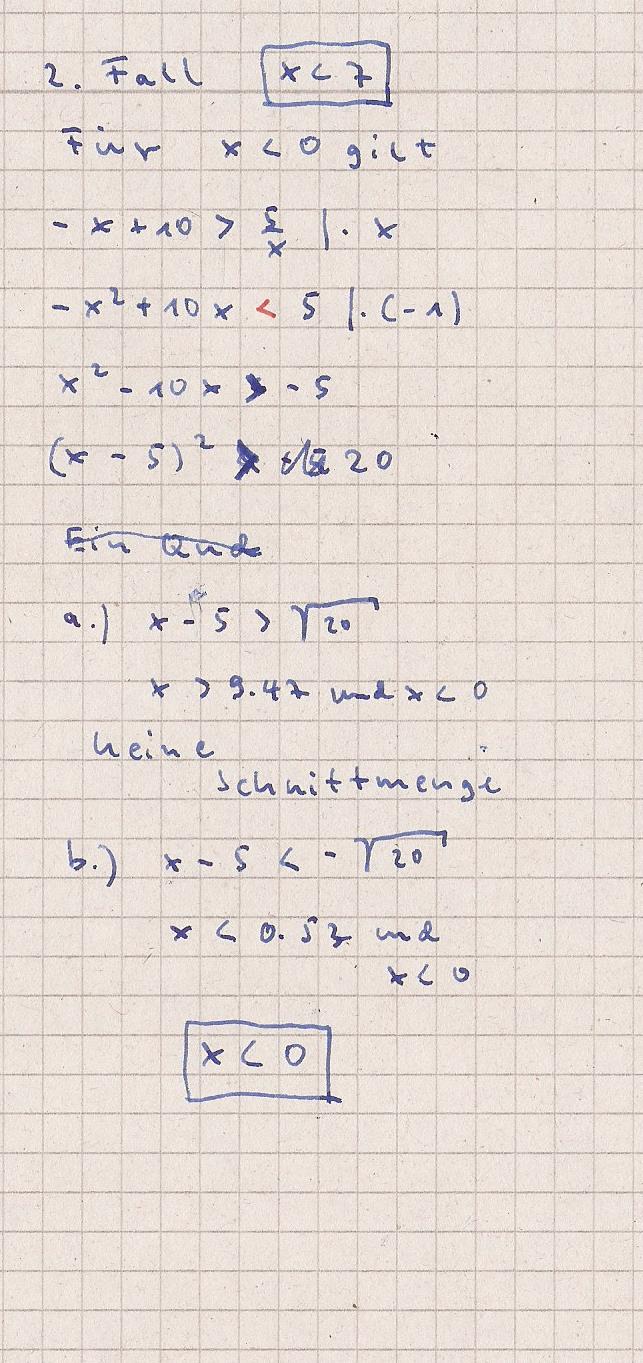 2. Fall x < 7
Für x < 0 gilt
- x + 10 > 5/x | · x
- x² + 10 x < 5 | · (-1)
x² - 10 x > - 5
(x - 5)² > 20
a.) x - 5 > √20
x > 9.47 und x < 0
keine
Schnittmenge
b.) x - 5 < - √20
x < 0.53 und
x < 0
x < 0